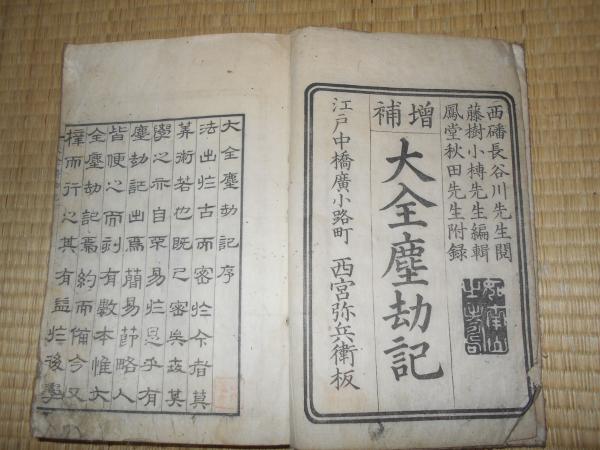 西磻長谷川先生閲
藤樹小槫先生編輯
鳳堂秋田先生附録
増補
大全塵劫記
江戸中橋廣小路町 西宮弥兵衛板
大全塵劫記序
法出於古而密於今者莫
筭術若也既已密矣茲莫
學之亦自不易於是乎有
塵劫記出焉簡易節略人
皆便之而刻有數本惟大
全塵劫記爲約而備今又
擇而行之其有益於後學